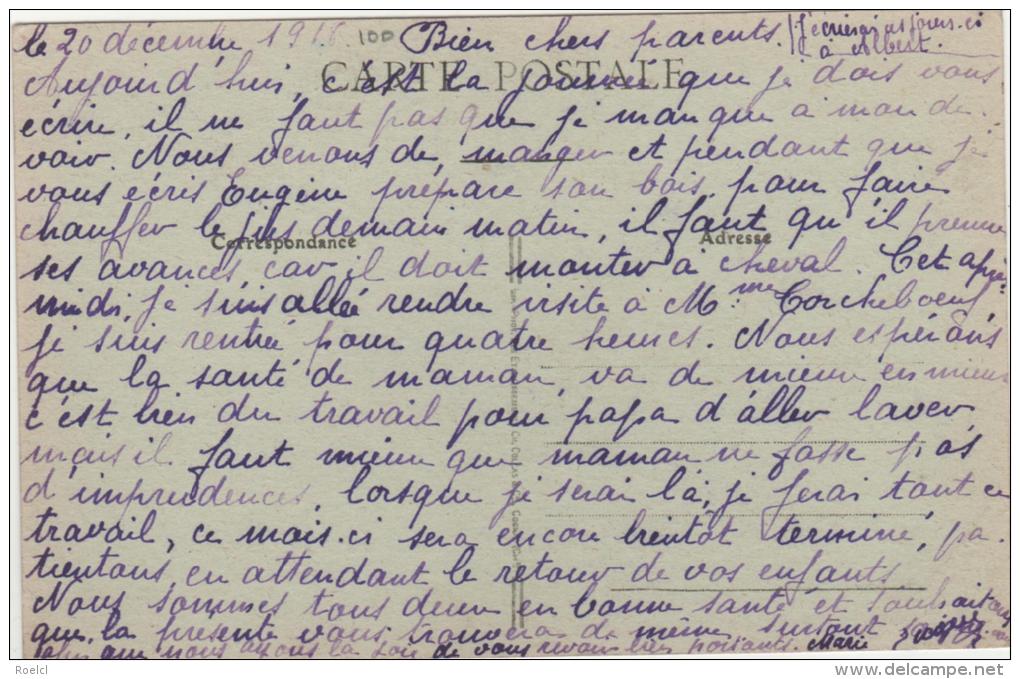 le 20 décembre 1918. 100 Bien chers parents. J'écrirai ces jours-ci
à Albert.
CARTE POSTALE
Aujourd'hui, c'est la journée que je dois vous
écrire, il ne faut pas que je manque à mon de-
voir. Nous venons de manger et pendant que je
vous écris Eugène prépare son bois pour faire
chauffer le jus demain matin, il faut qu'il prenne
Correspondance Adresse
ses avances car il doit monter à cheval. Cet après-
midi, je suis allée rendre visite à Mme Corcheboeuf
je suis rentrée pour quatre heures. Nous espérons
que la santé de maman, va de mieux en mieux
c'est bien du travail pour papa d'aller laver
mais il faut mieux que maman ne fasse pas
d'imprudences, lorsque je serai là, je ferai tout ce
travail, ce mois-ci sera encore bientôt terminé, pa-
tientons, en attendant le retour de vos enfants.
Nous sommes tous deux en bonne santé et souhaitons
que la présente vous trouvera de même surtout
que nous ayons la joie de vous revoir bien portants. Marie
Roelcl
© delcampe.net